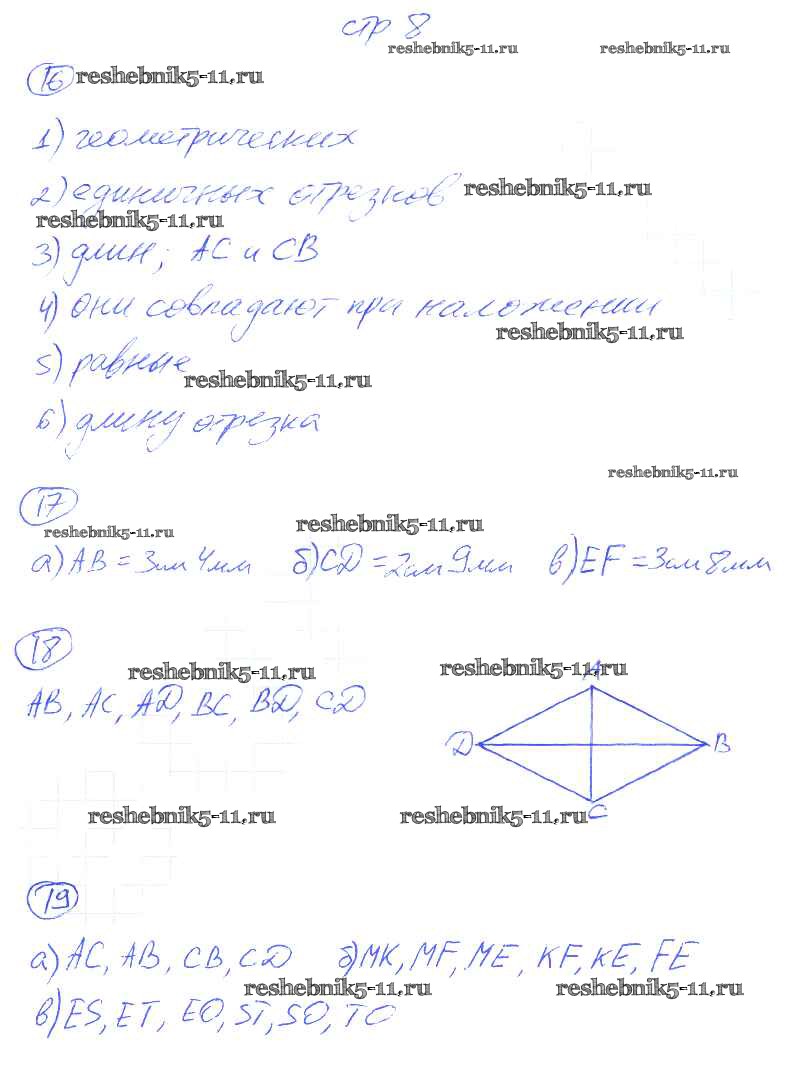 стр 8
reshebnik5-11.ru reshebnik5-11.ru
16 reshebnik5-11.ru
1) геометрических
2) единичных отрезков reshebnik5-11.ru
reshebnik5-11.ru
3) длин; AC и CB
4) они совпадают при наложении
reshebnik5-11.ru
5) равные
reshebnik5-11.ru
6) длину отрезка
reshebnik5-11.ru
17
reshebnik5-11.ru reshebnik5-11.ru
а) AB = 3см 4мм б) CD = 2см 9мм в) EF = 3см 8мм
18
reshebnik5-11.ru reshebnik5-11.ru
A
AB, AC, AD, BC, BD, CD
D B
reshebnik5-11.ru reshebnik5-11.ru
C
19
а) AC, AB, CB, CD б) MK, MF, ME, KF, KE, FE
reshebnik5-11.ru reshebnik5-11.ru
в) ES, ET, EO, ST, SO, TO